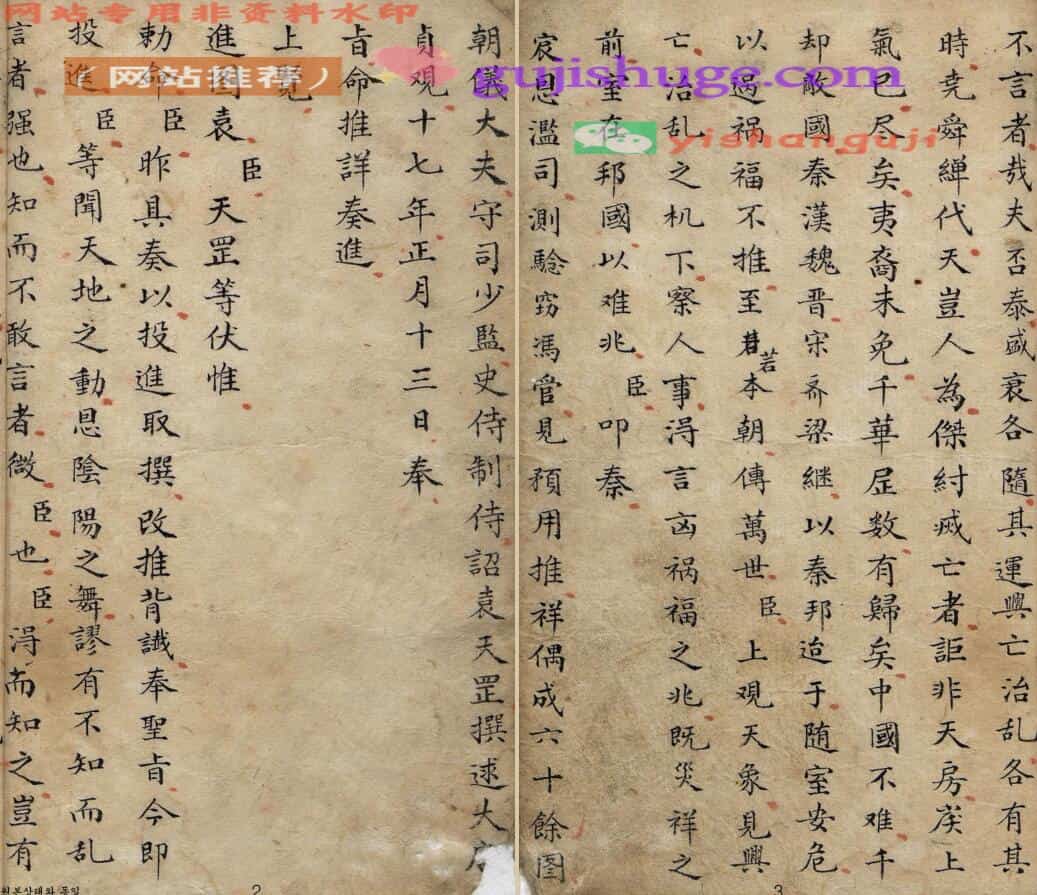 网站专用非资料水印
网站推荐）
gujishuge.com
yishanguji
朝儀大夫守司少監史侍制侍詔袁天罡撰逑大
貞观十七年正月十三日奉
旨命推詳奏進
上覽
進图袁臣天罡等伏惟
勅命臣昨具奏以投進取撰改推背讖奉聖旨今即
投進臣等聞天地之動息陰陽之舞謬有不知而乱
言者强也知而不敢言者微臣也臣淂而知之豈有
2
不言者哉夫否泰盛衰各隨其運興亡治乱各有其
時尭舜禅代天豈人為傑紂烕亡者詎非天房戻上
氣已尽矣夷裔未免千華屈数有歸矣中國不难千
却敵國秦漢魏晋宋斉梁継以秦邦迨于随室安危
以過祸福不推至君若本朝傳萬世臣上观天象見興
亡治乱之机下察人事淂言凶祸福之兆既災祥之
前室在邦國以难兆臣叩秦
宸恩濫司測驗窃馮管見預用推祥偶成六十餘图
3